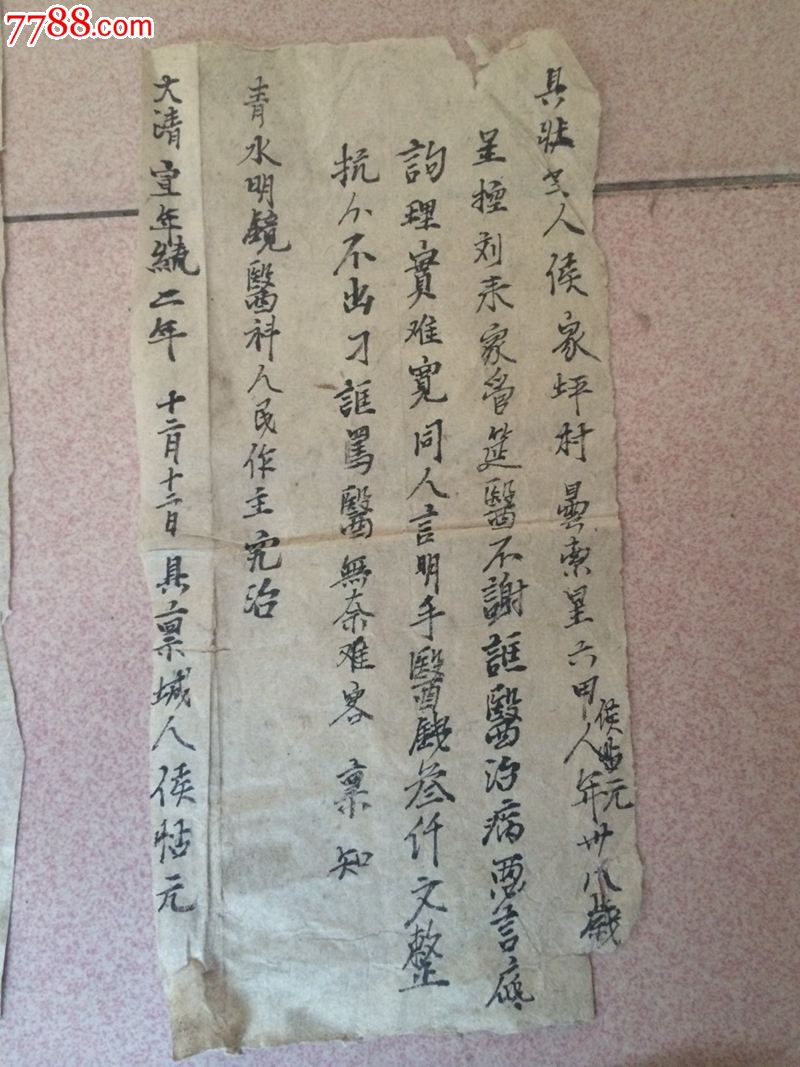 7788.com
具壯 人侯家坪村 里六甲人侯帖元年卅八歲
呈控刘来家 筵醫不謝誆醫治病惡言
訽理實难寬同人言明手醫錢叁仟文整
抗 不出刁誆罵醫無奈难容 稟知
青水明鏡醫科人民作主究治
大清宣年統二年 十二月十二日 具稟 人侯帖元